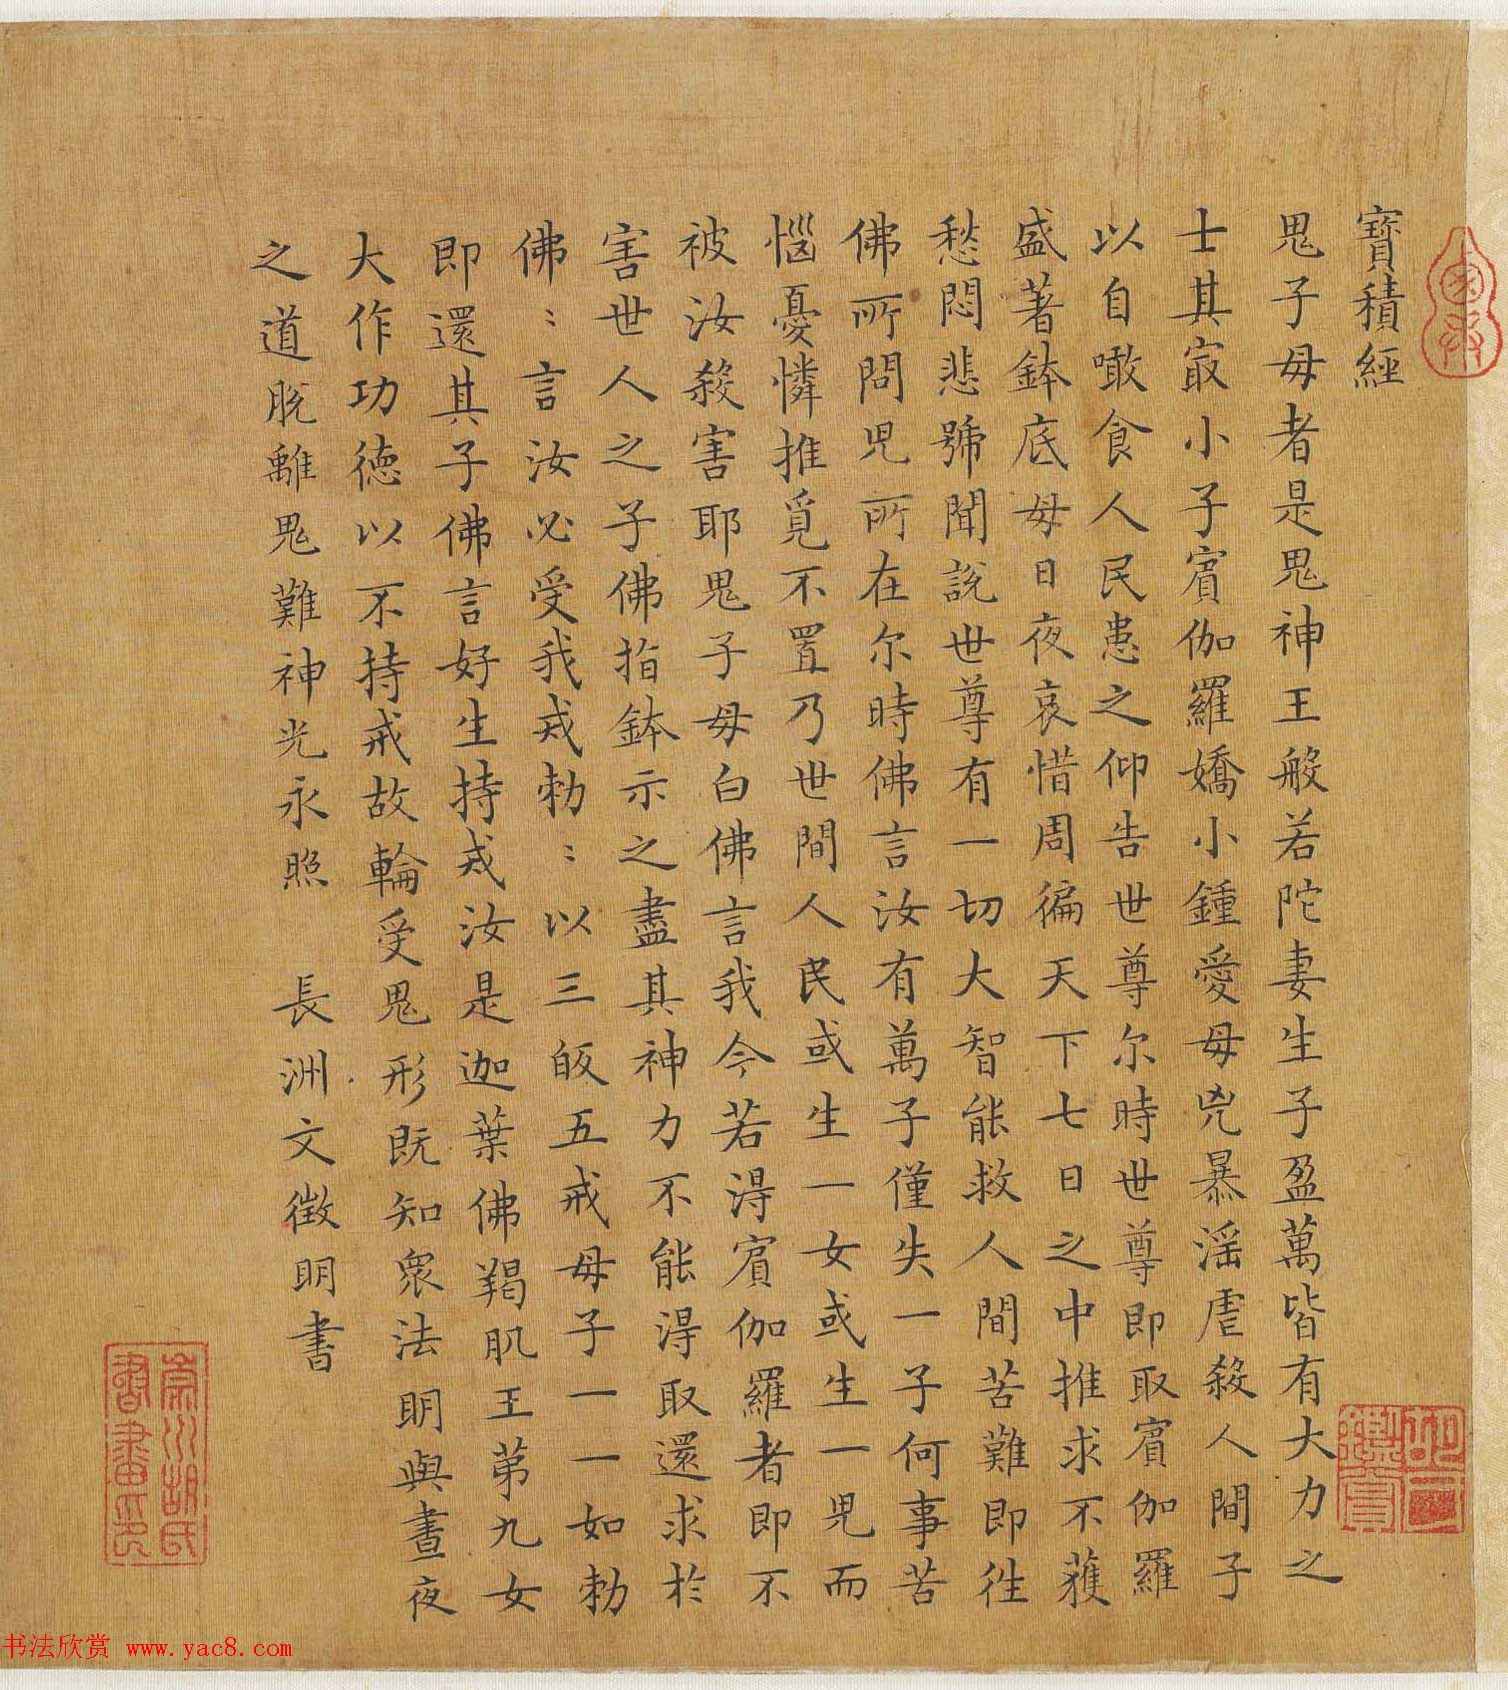 寶積經
鬼子母者是鬼神王般若陀妻生子盈萬皆有大力之
士其冣小子賔伽羅嬌小鍾愛母兇暴滛虐殺人間子
以自噉食人民患之仰告世尊尔時世尊即取賔伽羅
盛著鉢底母日夜哀惜周徧天下七日之中推求不獲
愁悶悲號聞說世尊有一切大智能救人間苦難即往
佛所問兒所在尔時佛言汝有萬子僅失一子何事苦
惱憂憐推覓不置乃世間人民或生一女或生一兒而
被汝殺害耶鬼子母白佛言我今若淂賔伽羅者即不
害世人之子佛指鉢示之盡其神力不能淂取還求於
佛〻言汝必受我戒勅〻以三皈五戒母子一一如勅
即還其子佛言好生持戒汝是迦葉佛羯肌王第九女
大作功德以不持戒故輪受鬼形既知眾法明與晝夜
之道脫離鬼難神光永照 長洲文徵明書
书法欣赏 www.yac8.com